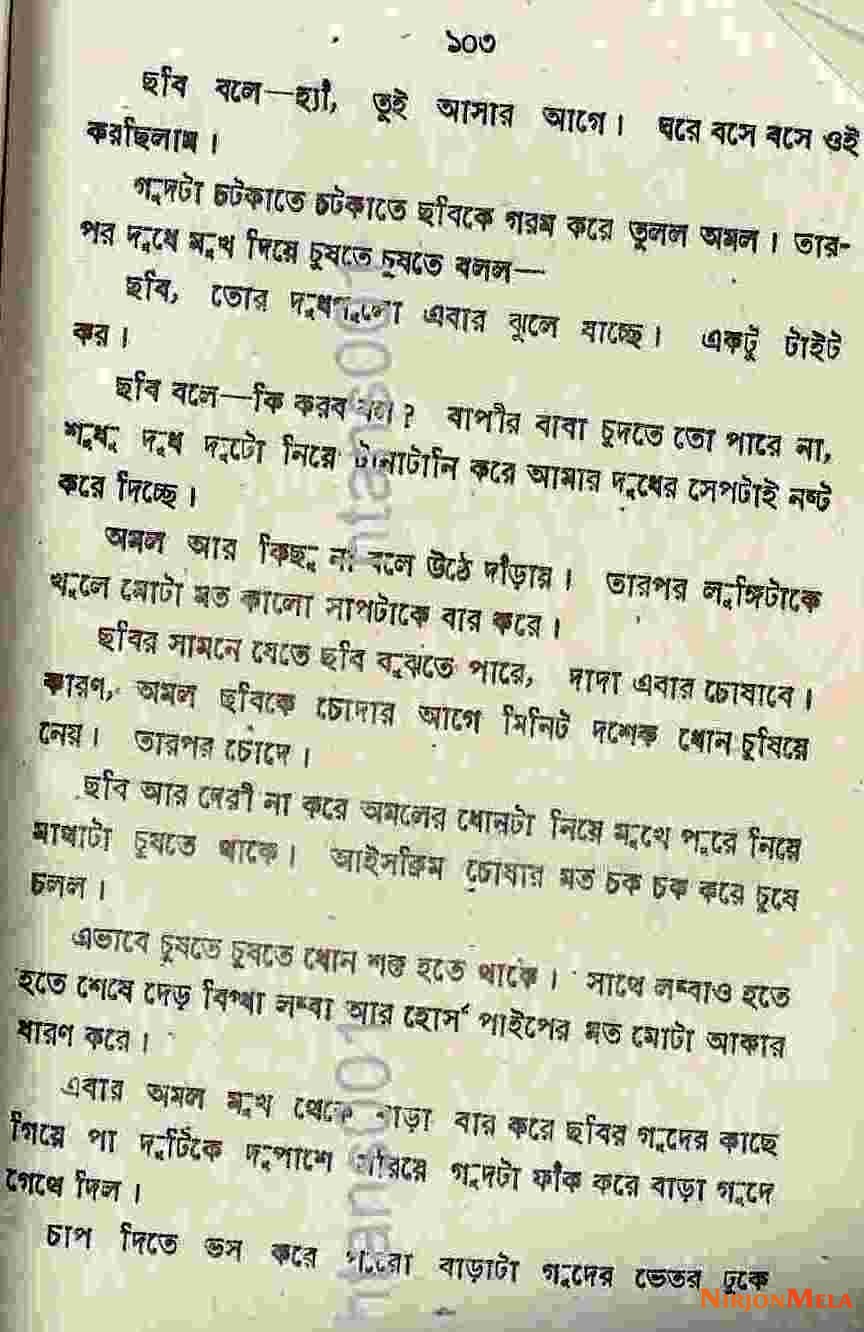 ১০৩
ছবি বলে—হ্যাঁ, তুই আসার আগে। ঘরে বসে বসে ওই
করছিলাম।
গুদটা চটকাতে চটকাতে ছবিকে গরম করে তুলল অমল। তার-
পর দুধে মুখ দিয়ে চুষতে চুষতে বলল—
ছবি, তোর দুধগুলো এবার ঝুলে যাচ্ছে। একটু টাইট
কর।
ছবি বলে—কি করব বল? বাপীর বাবা চুদতে তো পারে না,
শুধু দুধ দুটো নিয়ে টানাটানি করে আমার দুধের সেপটাই নষ্ট
করে দিচ্ছে।
অমল আর কিছু না বলে উঠে দাঁড়ায়। তারপর লুঙ্গিটাকে
খুলে মোটা মত কালো সাপটাকে বার করে।
ছবির সামনে যেতে ছবি বুঝতে পারে, দাদা এবার চোষাবে।
কারণ, অমল ছবিকে চোদার আগে মিনিট দশেক ধোন চুষিয়ে
নেয়। তারপর চোদে।
ছবি আর দেরী না করে অমলের ধোনটা নিয়ে মুখে পুরে নিয়ে
মাথাটা চুষতে থাকে। আইসক্রিম চোষার মত চক চক করে চুষে
চলল।
এভাবে চুষতে চুষতে ধোন শক্ত হতে থাকে। সাথে লম্বাও হতে
হতে শেষে দেড় বিঘ্থা লম্বা আর হোর্স পাইপের মত মোটা আকার
ধারণ করে।
এবার অমল মুখ থেকে বাড়া বার করে ছবির গুদের কাছে
গিয়ে পা দুটিকে দুপাশে সরিয়ে গুদটা ফাঁক করে বাড়া গুদে
গেথে দিল।
চাপ দিতে ভস করে পুরো বাড়াটা গুদের ভেতর ঢুকে
htans001
htans001
NIRJONMELA